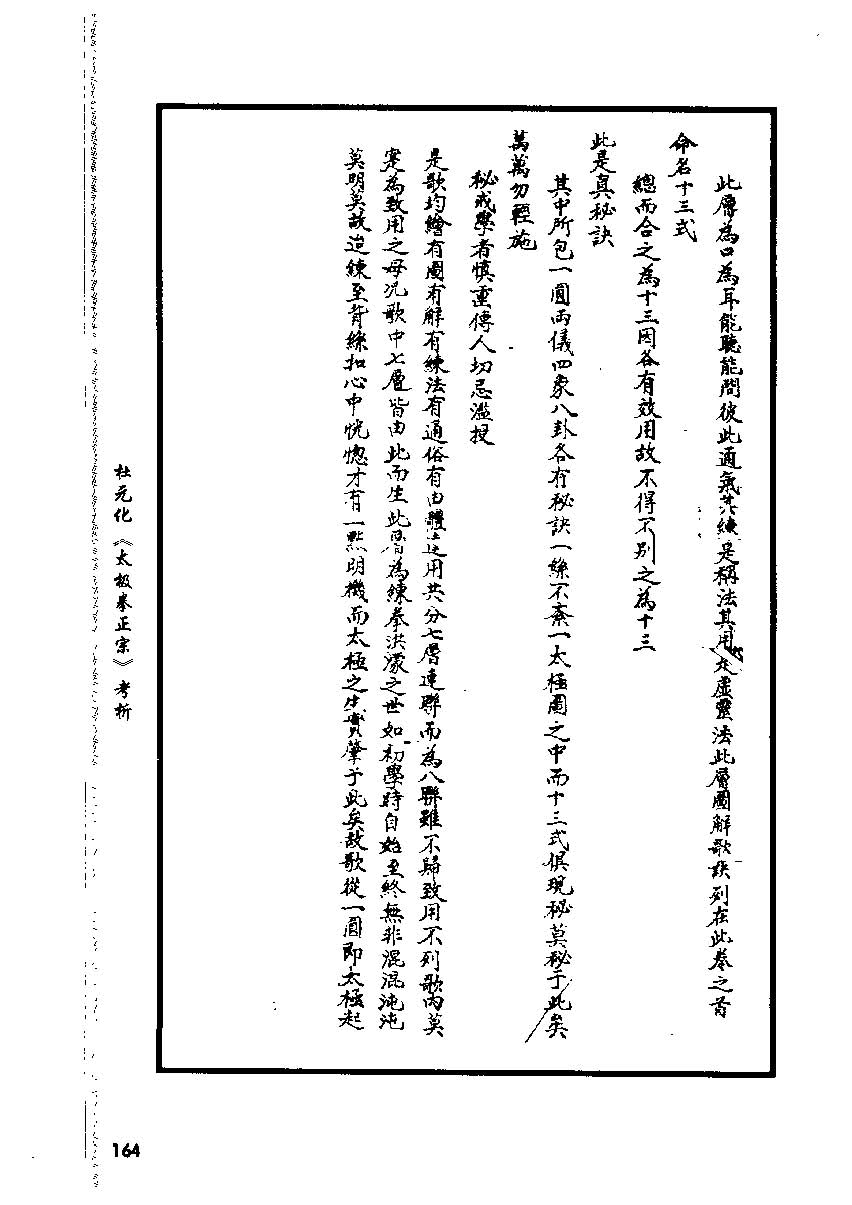 此層為口為耳能聽能問彼此通氣其練是稱法其用是虛靈法此層圖解歌訣列在此卷之首
命名十三式
總而合之為十三因各有效用故不得不別之為十三
此是真秘訣
其中所包一圓兩儀四象八卦各有秘訣一絲不紊一太極圖之中而十三式俱現秘莫秘于此矣
萬萬勿輕施
秘戒學者慎重傳人切忌濫授
是歌均繪有圖有解有練法有通俗有由體達用共分七層連聯而為八聯雖不歸致用不列歌內莫
寔為致用之母况歌中七層皆由此而生此層為練拳洪濛之世如初學時自始至終無非混混沌沌
莫明莫故迨練至背絲扣心中恍惚才有一點明機而太極之生實肇于此矣故歌從一圓即太極起
杜元化《太极拳正宗》考析
164